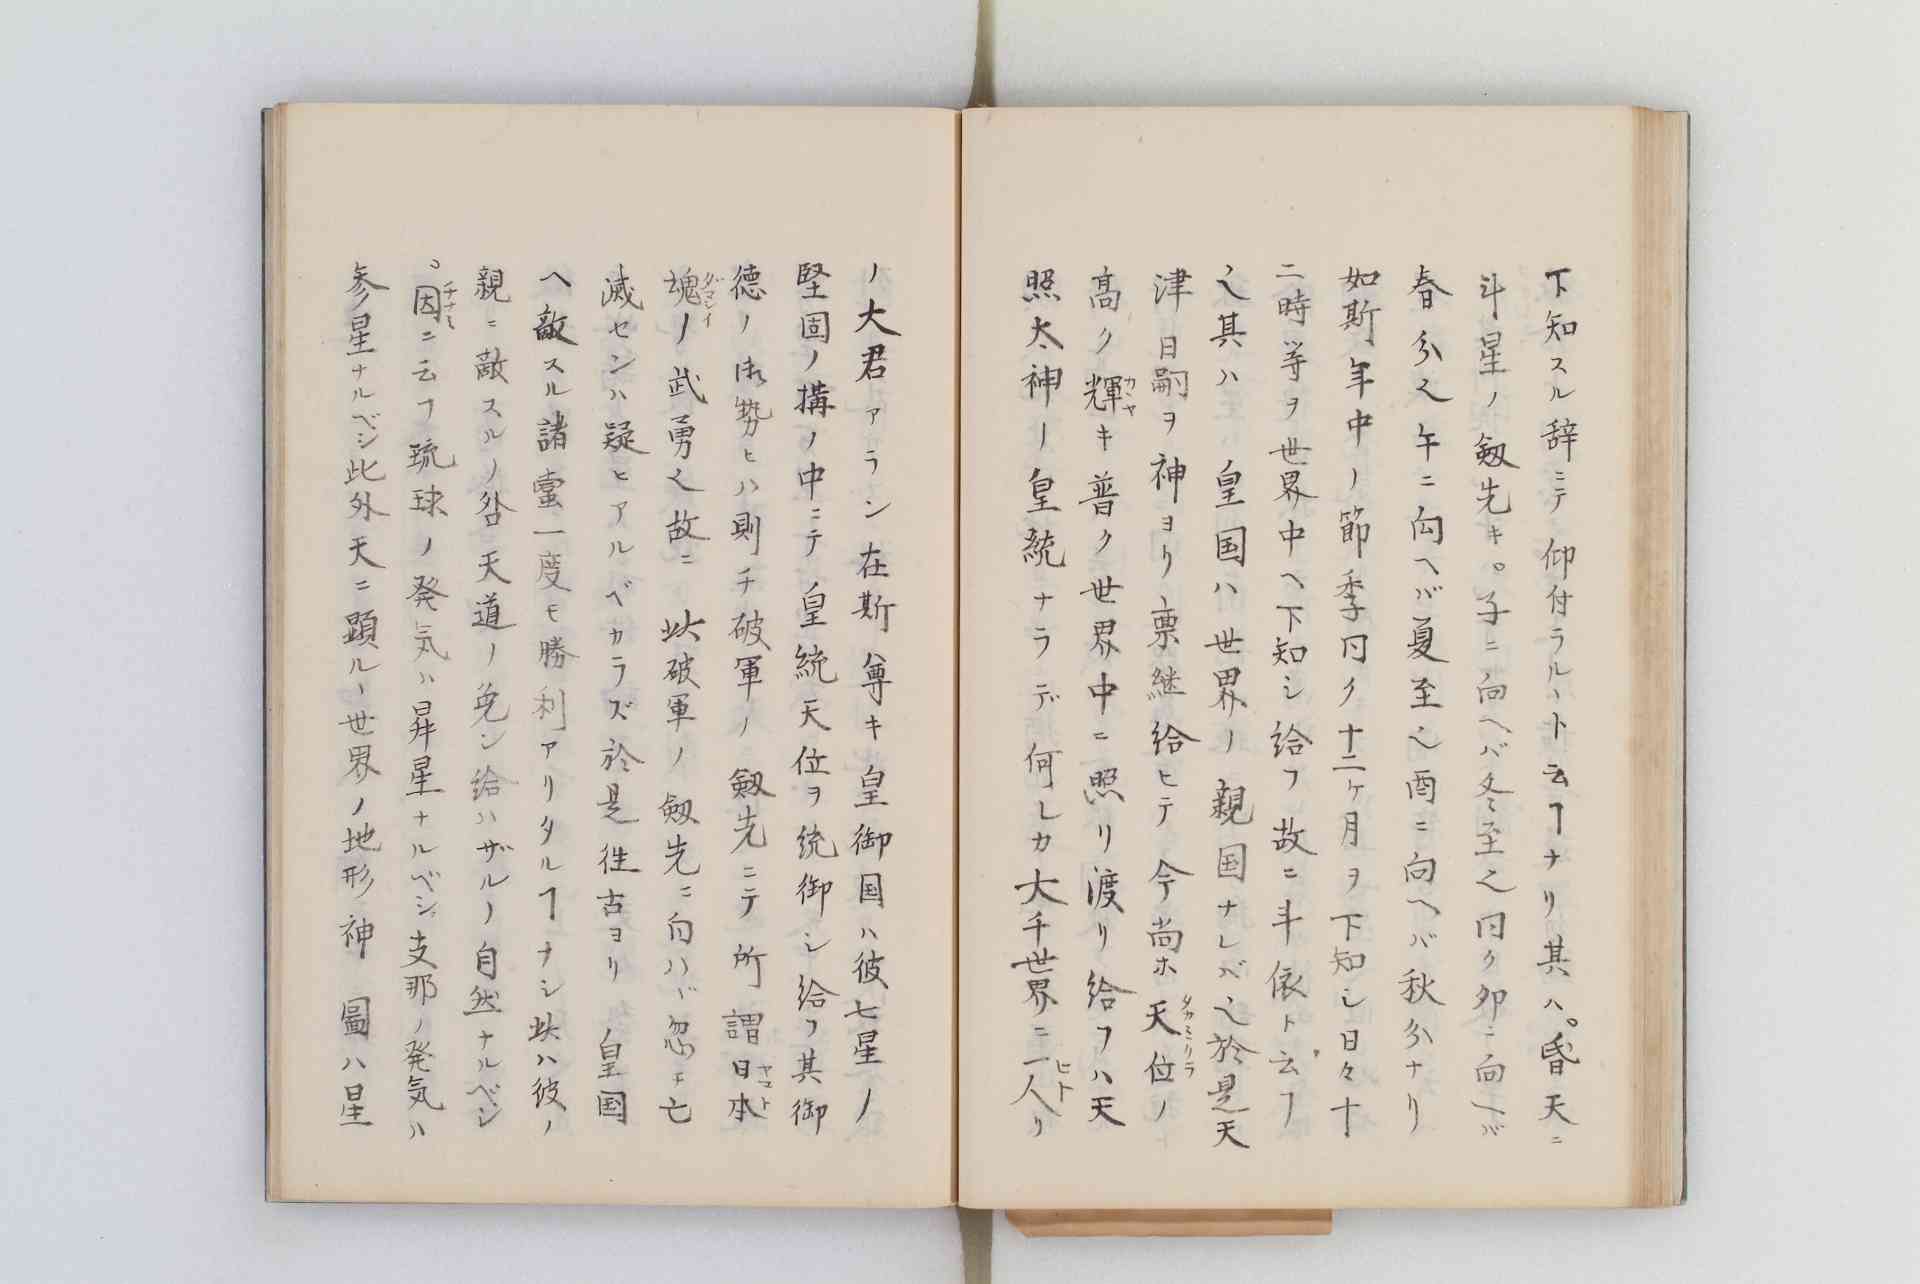 下知スル辞ニテ仰付ラルヽト云ヿナリ其ハ。昏天ニ
斗星ノ劔先キ。子ニ向ヘバ冬至也同ク卯ニ向ヘバ
春分也午ニ向ヘバ夏至也酉ニ向ヘバ秋分ナリ
如斯年中ノ節季同ク十二ケ月ヲ下知シ日々十
二時等ヲ世界中ヘ下知シ給フ故ニ斗依ト云フヿ
也其ハ皇国ハ世界ノ親国ナレバ也於是天
津日嗣ヲ神ヨリ禀継給ヒテ今尚ホ天位タカミクラノ
高ク輝カヽヤキ普ク世界中ニ照リ渡リ給フハ天
照太神ノ皇統ナラデ何レカ大千世界ニ一人ヒトリ
ノ大君アラン在斯尊キ皇御国ハ彼七星ノ
堅固ノ搆ノ中ニテ皇統天位ヲ統御シ給フ其御
徳ノ御勢ヒハ則チ破軍ノ劔先ニテ所謂日本ヤマト
魂ダマシイノ武勇也故ニ此破軍ノ劔先ニ向ハヾ忽チ亡
滅センハ疑ヒアルベカラズ於是徃古ヨリ皇国
ヘ敵スル諸蛮一度モ勝利アリタルヿナシ此ハ彼ノ
親ニ敵スルノ咎天道ノ免シ給ハザルノ自然ナルベシ
。因チナミニ云フ琉球ノ発気ハ昴星ナルベシ支那ノ発気ハ
参星ナルベシ此外天ニ顕ルヽ世界ノ地形神圖ハ星